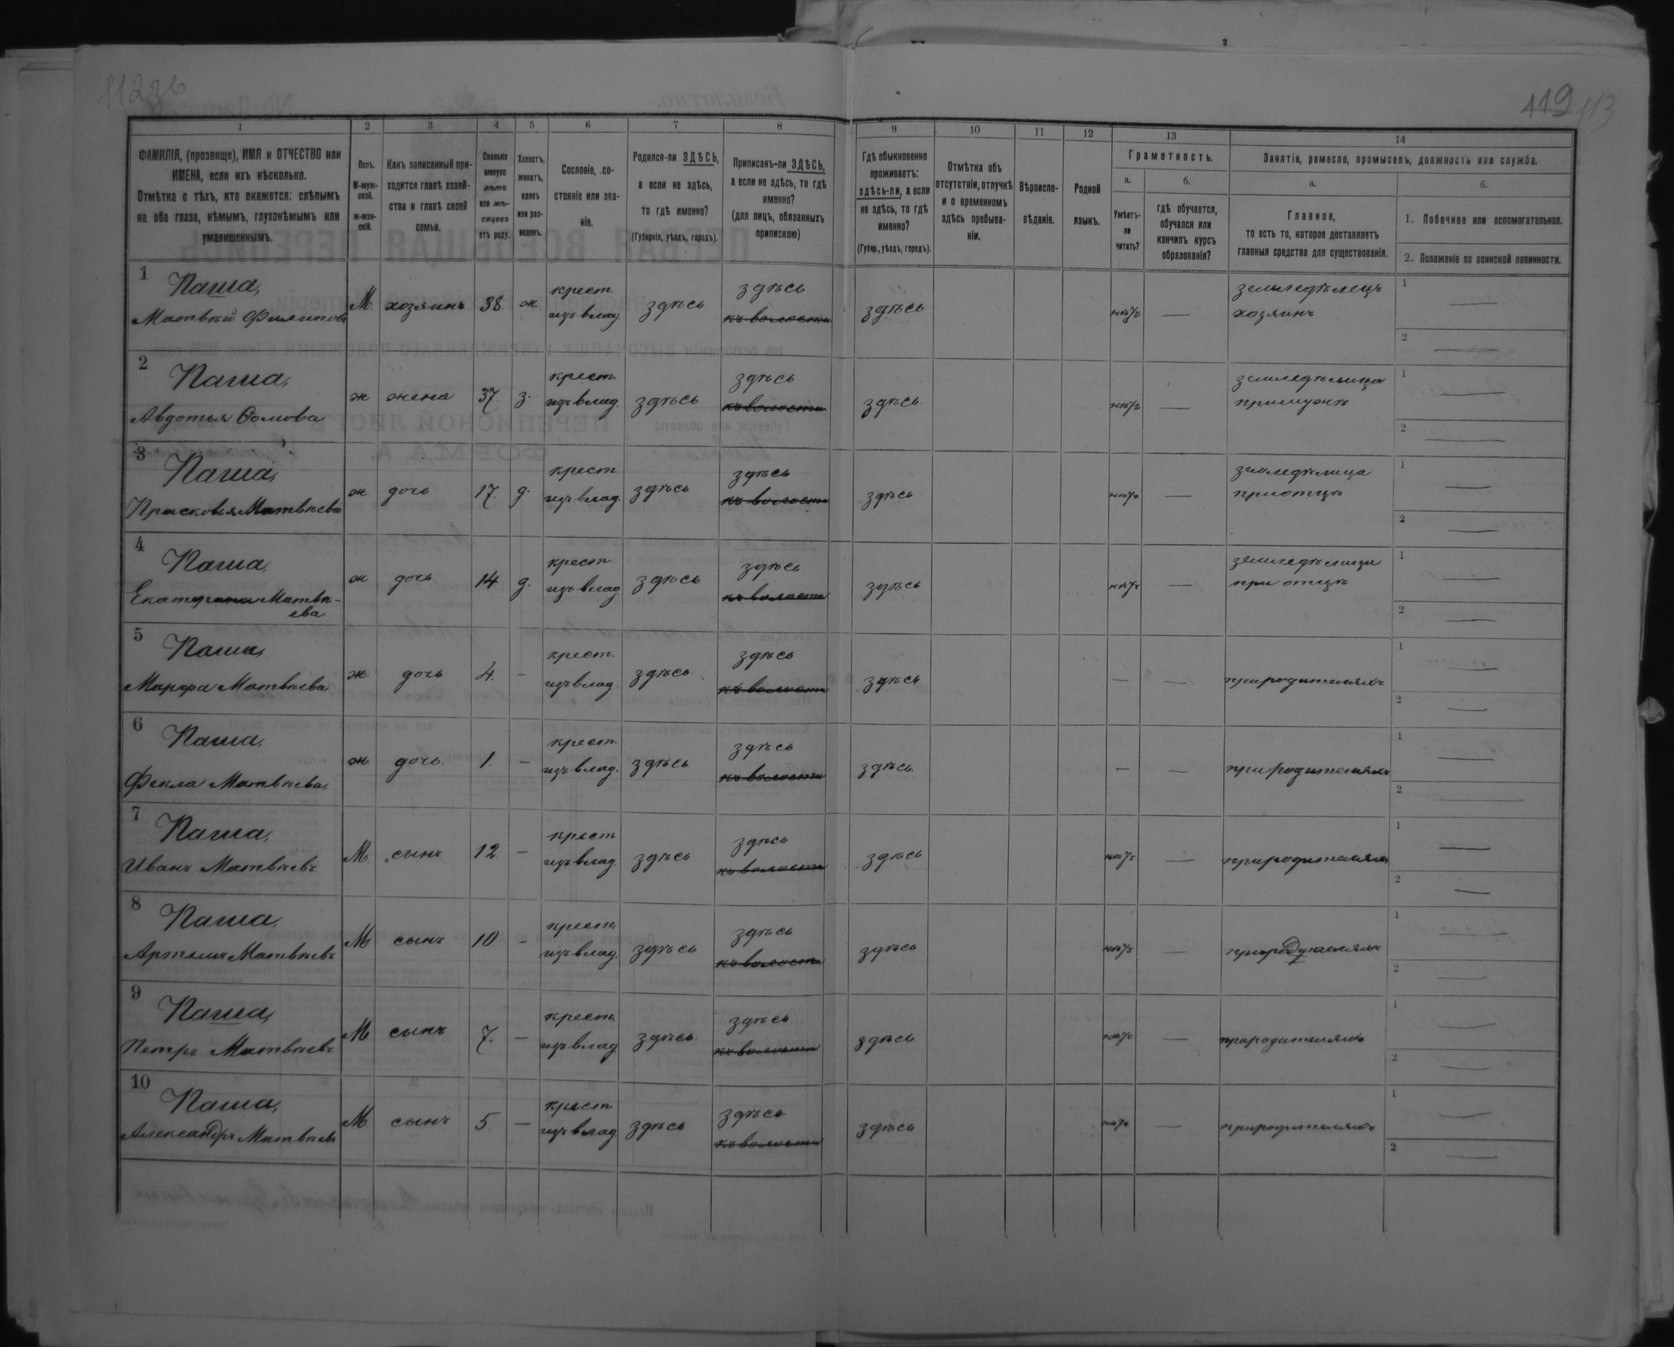 112об
119 113
1 2 3 4 5 6 7 8 9 10 11 12 13 14
ФАМИЛІЯ, (прозвище), ИМЯ и ОТЧЕСТВО или
ИМЕНА, если ихъ нѣсколько.
Отмѣтка о тѣхъ, кто окажется: слѣпымъ
на оба глаза, нѣмымъ, глухонѣмымъ или
умалишеннымъ.
Полъ.
М-муж-
ской.
ж-жен-
скій.
Какъ записанный при-
ходится главѣ хозяй-
ства и главѣ своей
семьи.
Сколько
минуло
лѣтъ
или мѣ-
сяцевъ
отъ роду.
Холостъ,
женатъ,
вдовъ
или раз-
веденъ.
Сословіе, со-
стояніе или зва-
ніе.
Родился-ли ЗДѢСЬ,
а если не здѣсь,
то гдѣ именно?
(Губернія, уѣздъ, городъ).
Приписанъ-ли ЗДѢСЬ,
а если не здѣсь, то гдѣ
именно?
(для лицъ, обязанныхъ
припискою)
Гдѣ обыкновенно
проживаетъ:
здѣсь-ли, а если
не здѣсь, то гдѣ
именно?
(Губер., уѣздъ, городъ).
Отмѣтка объ
отсутствіи, отлучкѣ
и о временномъ
здѣсь пребыва-
ніи.
Вѣроиспо-
вѣданіе.
Родной
языкъ.
Грамотность.
а.
Умѣетъ-
ли
читать?
б.
гдѣ обучается,
обучался или
кончилъ курсъ
образованія?
Занятіе, ремесло, промыселъ, должность или служба.
а.
Главное,
то есть то, которое доставляетъ
главныя средства для существованія.
б.
1. Побочное или вспомогательное.
2. Положеніе по воинской повинности.
1 Паша,
Матвѣй Филиповъ М. хозяинъ 38. ж крест. изъ влад. здѣсь здѣсь къ волости здѣсь нѣтъ — земледѣлецъ хозяинъ 1 — 2 —
2 Паша,
Авдотья Ѳомова ж жена 37. з. крест. изъ влад. здѣсь здѣсь къ волости здѣсь нѣтъ — земледѣлица примужѣ 1 — 2 —
3 Паша,
Прасковья Матвѣева ж дочь 17. д. крест. изъ влад. здѣсь здѣсь къ волости здѣсь нѣтъ — земледѣлица приотцѣ 1 — 2 —
4 Паша,
Екатерина Матвѣ-
ева ж дочь 14 д. крест. изъ влад здѣсь здѣсь къ волости здѣсь нѣтъ — земледѣлица при отцѣ 1 — 2 —
5 Паша,
Марфа Матвѣева ж дочь 4. — крест. изъ влад. здѣсь здѣсь къ волости здѣсь — — природителяхъ 1 — 2 —
6 Паша,
Фекла Матвѣева, ж дочь 1 — крест. изъ влад. здѣсь здѣсь къ волости здѣсь — — природителяхъ 1 — 2 —
7 Паша,
Иванъ Матвѣевъ М. сынъ 12 — крест изъ влад здѣсь здѣсь къ волости здѣсь нѣтъ — природителяхъ 1 — 2 —
8 Паша,
Артемъ Матвѣевъ М сынъ 10 — крест. изъ влад. здѣсь здѣсь къ волости здѣсь нѣтъ — природителяхъ 1 — 2 —
9 Паша,
Петръ Матвѣевъ М сынъ 7. — крест. изъ влад. здѣсь здѣсь къ волости здѣсь нѣтъ — природителяхъ 1 — 2 —
10 Паша,
Александръ Матвѣевъ М сынъ 5 — крест изъ влад здѣсь здѣсь къ волости здѣсь нѣтъ — природителяхъ 1 — 2 —